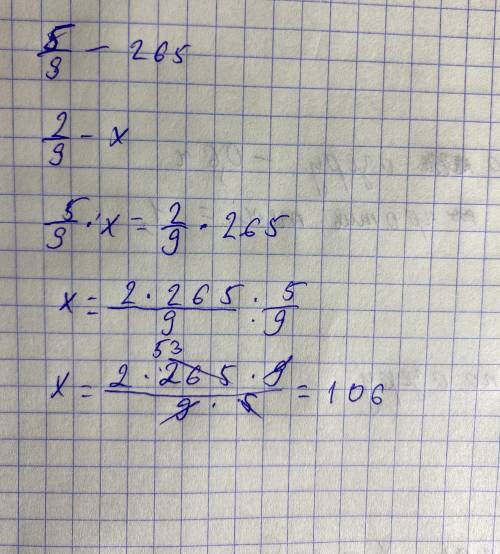 5/9 - 265
2/9 - x
5/9 · x = 2/9 · 265
x = 2 · 265/9 : 5/9
53
x = 2 · 265 · 9/9 · 5 = 106